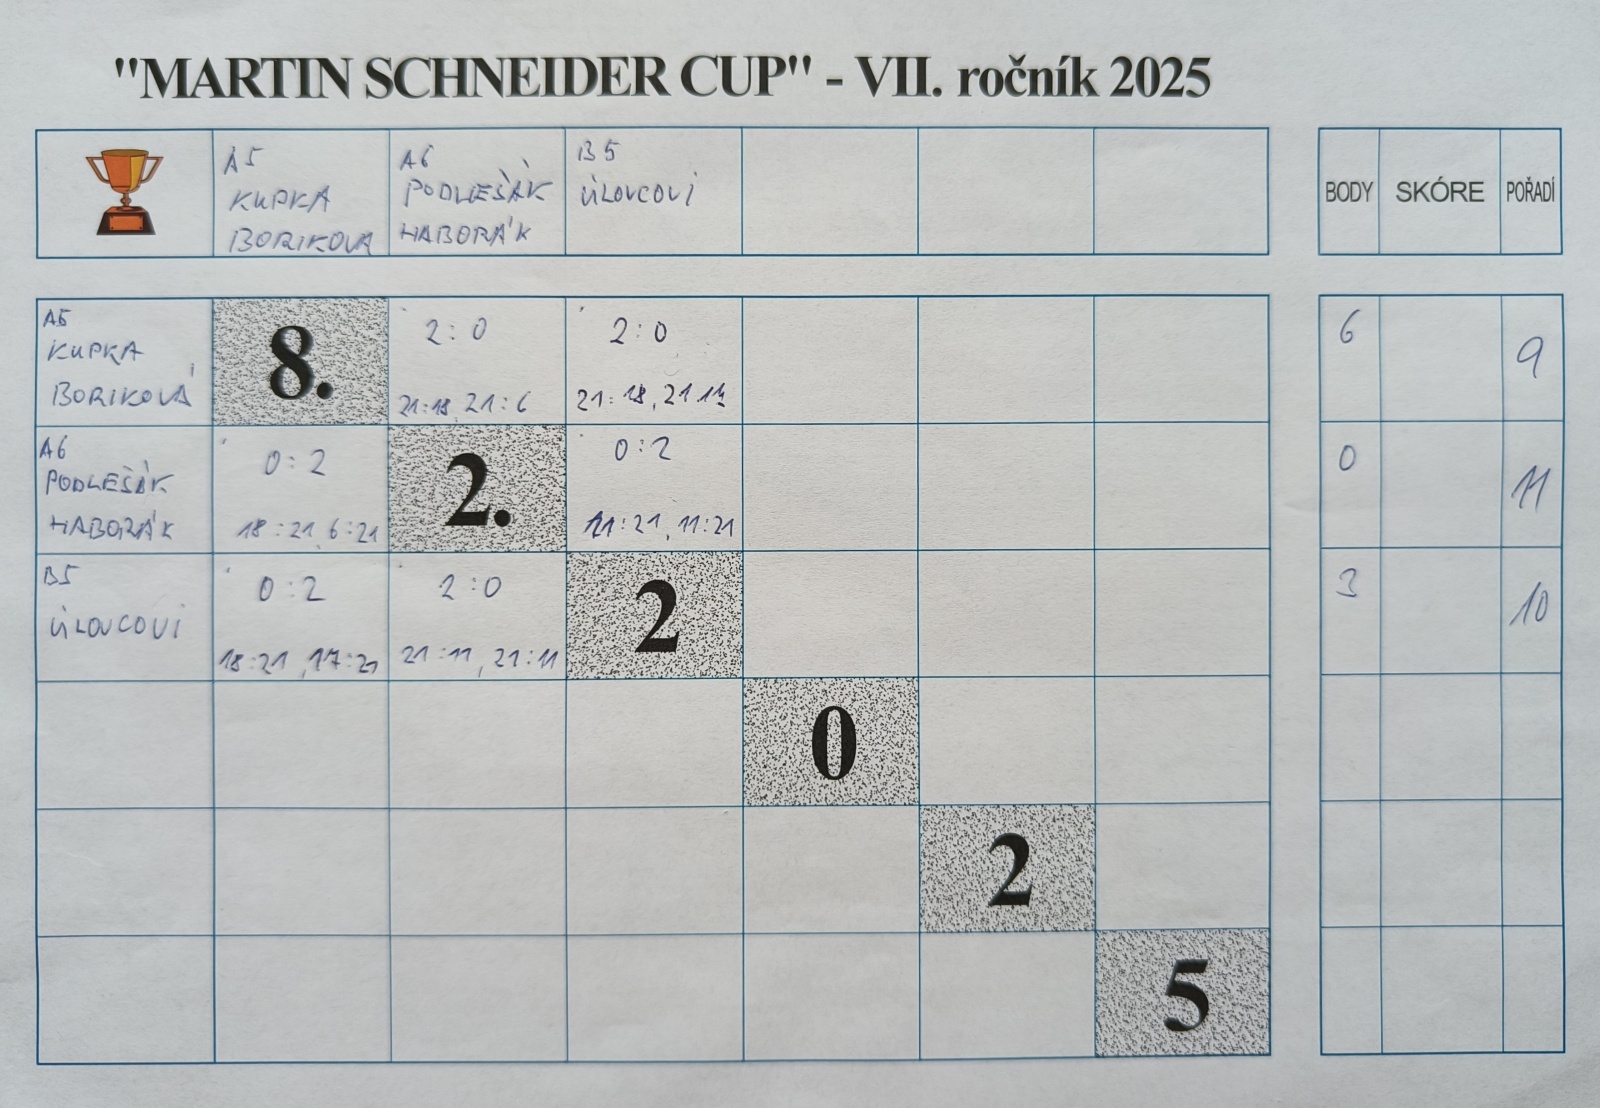 "MARTIN SCHNEIDER CUP" - VII. ročník 2025
A5 A6 B5
KUPKA PODLEŠÁK ÚLOVCOVI BODY SKÓRE POŘADÍ
BORIKOVÁ HABORÁK
A5 8. 2:0 2:0 6
KUPKA 9
BORIKOVÁ 21:18, 21:6 21:18, 21
A6 0:2 2. 0:2 0
PODLEŠÁK 11
HABORÁK 18:21, 6:21 11:21, 11:21
B5 0:2 2:0 2 3
ÚLOVCOVI 10
18:21, 17:21 21:11, 21:11
0
2
5